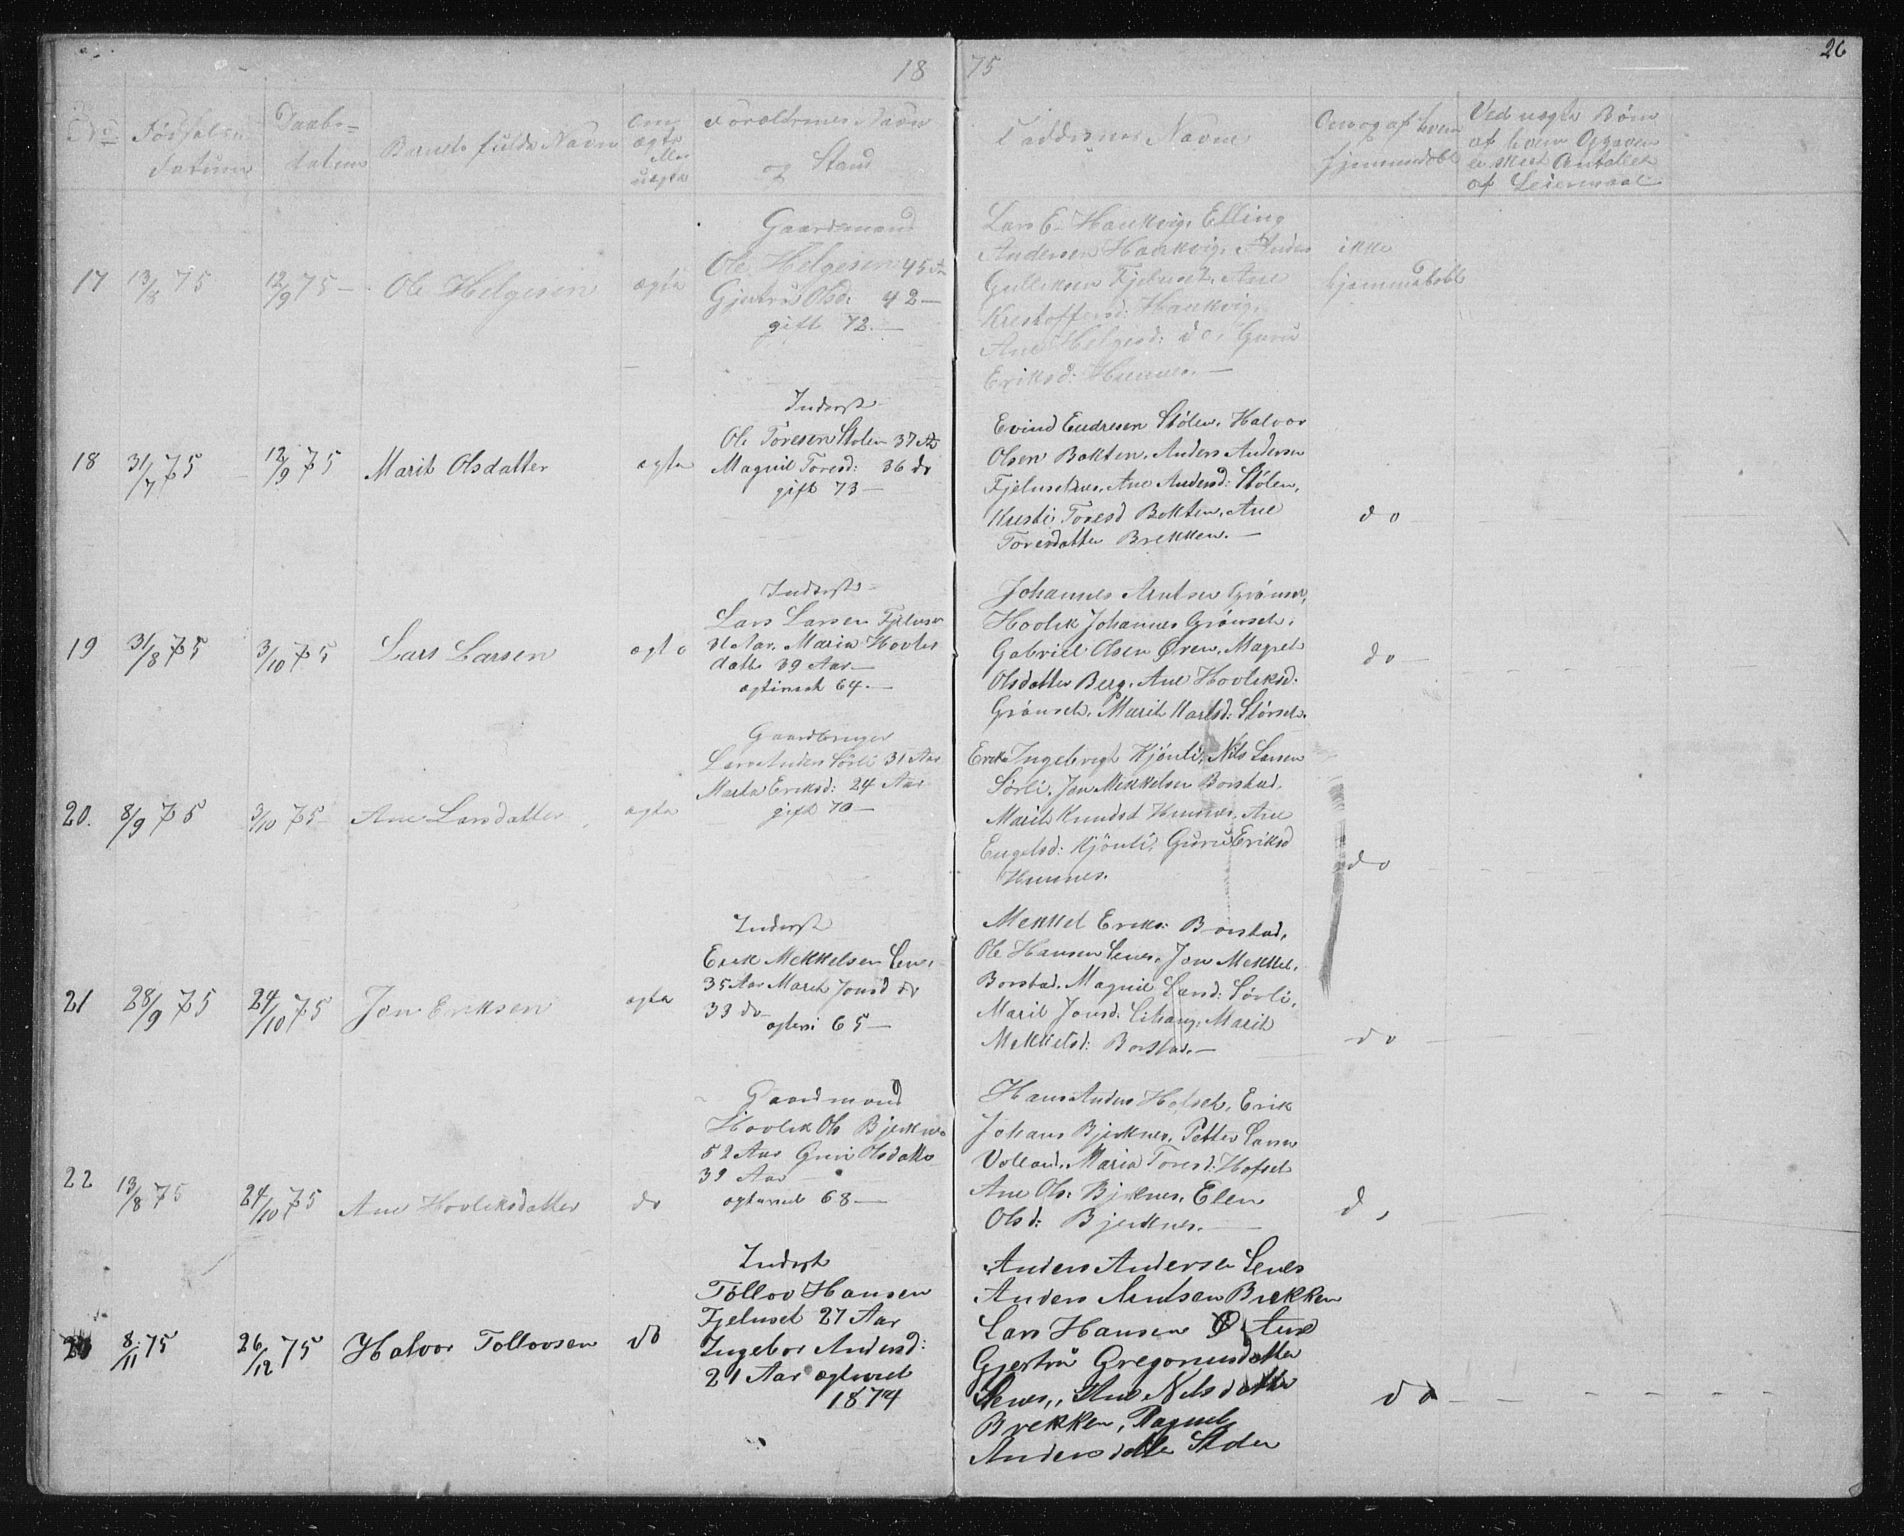 18 75
26
No
Fødselsdatum
Daabsdatum
Barnets fulde Navn
Om ægte eller uægte
Forældrenes Navn og Stand
Faddernes Navne
Om og af hvem hjemmedøbt
Ved uægte Børn af hvem Opgaven er skeet Antallet af Leiermaal
17 13/8 75 12/9 75 — Ole Helgesen ægte
Gaardmand
Ole Helgesen 45 Aar
Gjertru Olsd: 42 —
gift 72. —
Lars E. Haukvig, Elling
Andersen Haukvig, Anders
Gulliksen Fjeluset, Ane
Kristoffersd: Haukvig,
Ane Helgesd: do, Guru
Eriksd: Humnes. —
ikke
hjemmedøbt
18 31/7 75 12/9 75 Marit Olsdatter ægte
Inderst
Ole Toresen Stølen 37 Aar
Magnil Toresd: 36 do
gift 73 —
Evind Endresen Stølen, Halvor
Olsen Bokten, Anders Andersen
Fjeluset, Ane Andersd: Stølen,
Kirsti Toresd Bokten, Ane
Toresdatter Brekken. —
do
19 31/8 75 3/10 75 Lars Larsen ægte
Inderst
Lars Larsen Fjeluset
Aar, Maria Hovleks
datte 39 Aar —
egteviet 64. —
Johannes Arntsen Grønset,
Hovlek Johannes Grønset,
Gabriel Olsen Øren, Magret
Olsdatter Berg, Ane Hovleksd:
Grønset, Marit Larsd: Størset.
do —
20. 8/9 75 3/10 75 Ane Larsdatter ægte
Gaardbruger
Lars Anders Sørli 31 Aar
Marta Eriksd: 24 Aar
gift 70 —
Erik Ingebrigt Kjønli, Nils Larsen
Sørli, Jon Mekkelsen Borstad,
Marit Knudsd Humnes, Ane
Engelsd: Kjønli, Guru Eriksd
Humnes.
do
21 28/9 75 24/10 75 Jon Eriksen ægte
Inderst
Erik Mekkelsen Lenes
35 Aar Marit Jonsd do
39 do
egtevi 65 —
Mekkel Eriks: Borstad,
Ole Hansen Lenes, Jon Mekkel,
Borstad, Magnil Larsd: Sørli,
Marit Jonsd: Lihaug, Marit
Mekkelsd: Borstad. —
do
22 13/8 75 24/10 75 Ane Hovleksdatter do
Gaardmand
Hovlek Ols Bjerknes
52 Aar Guri Olsdatte
39 Aar
egteviet 68 —
Hans Anders Hofset, Erik
Johans Bjerknes, Petter Larsen
Volland, Maria Toresd: Hofset
Ane Ols: Bjerknes, Elen
Olsd: Bjerknes. —
do
8/11 75 26/12 75 Halvor Tollovsen do
Inderst
Tollov Hansen
Fjeluset 27 Aar
Ingebor Andersd:
21 Aar egteviet
1874
Anders Andersen Lenes
Anders Arntsen Brekken
Lars Hansen
Gjertru Gregoriusdatter
Lenes, Ane Nilsdatte
Brekken, Ragnel
Andersdatte Stølen
do — —